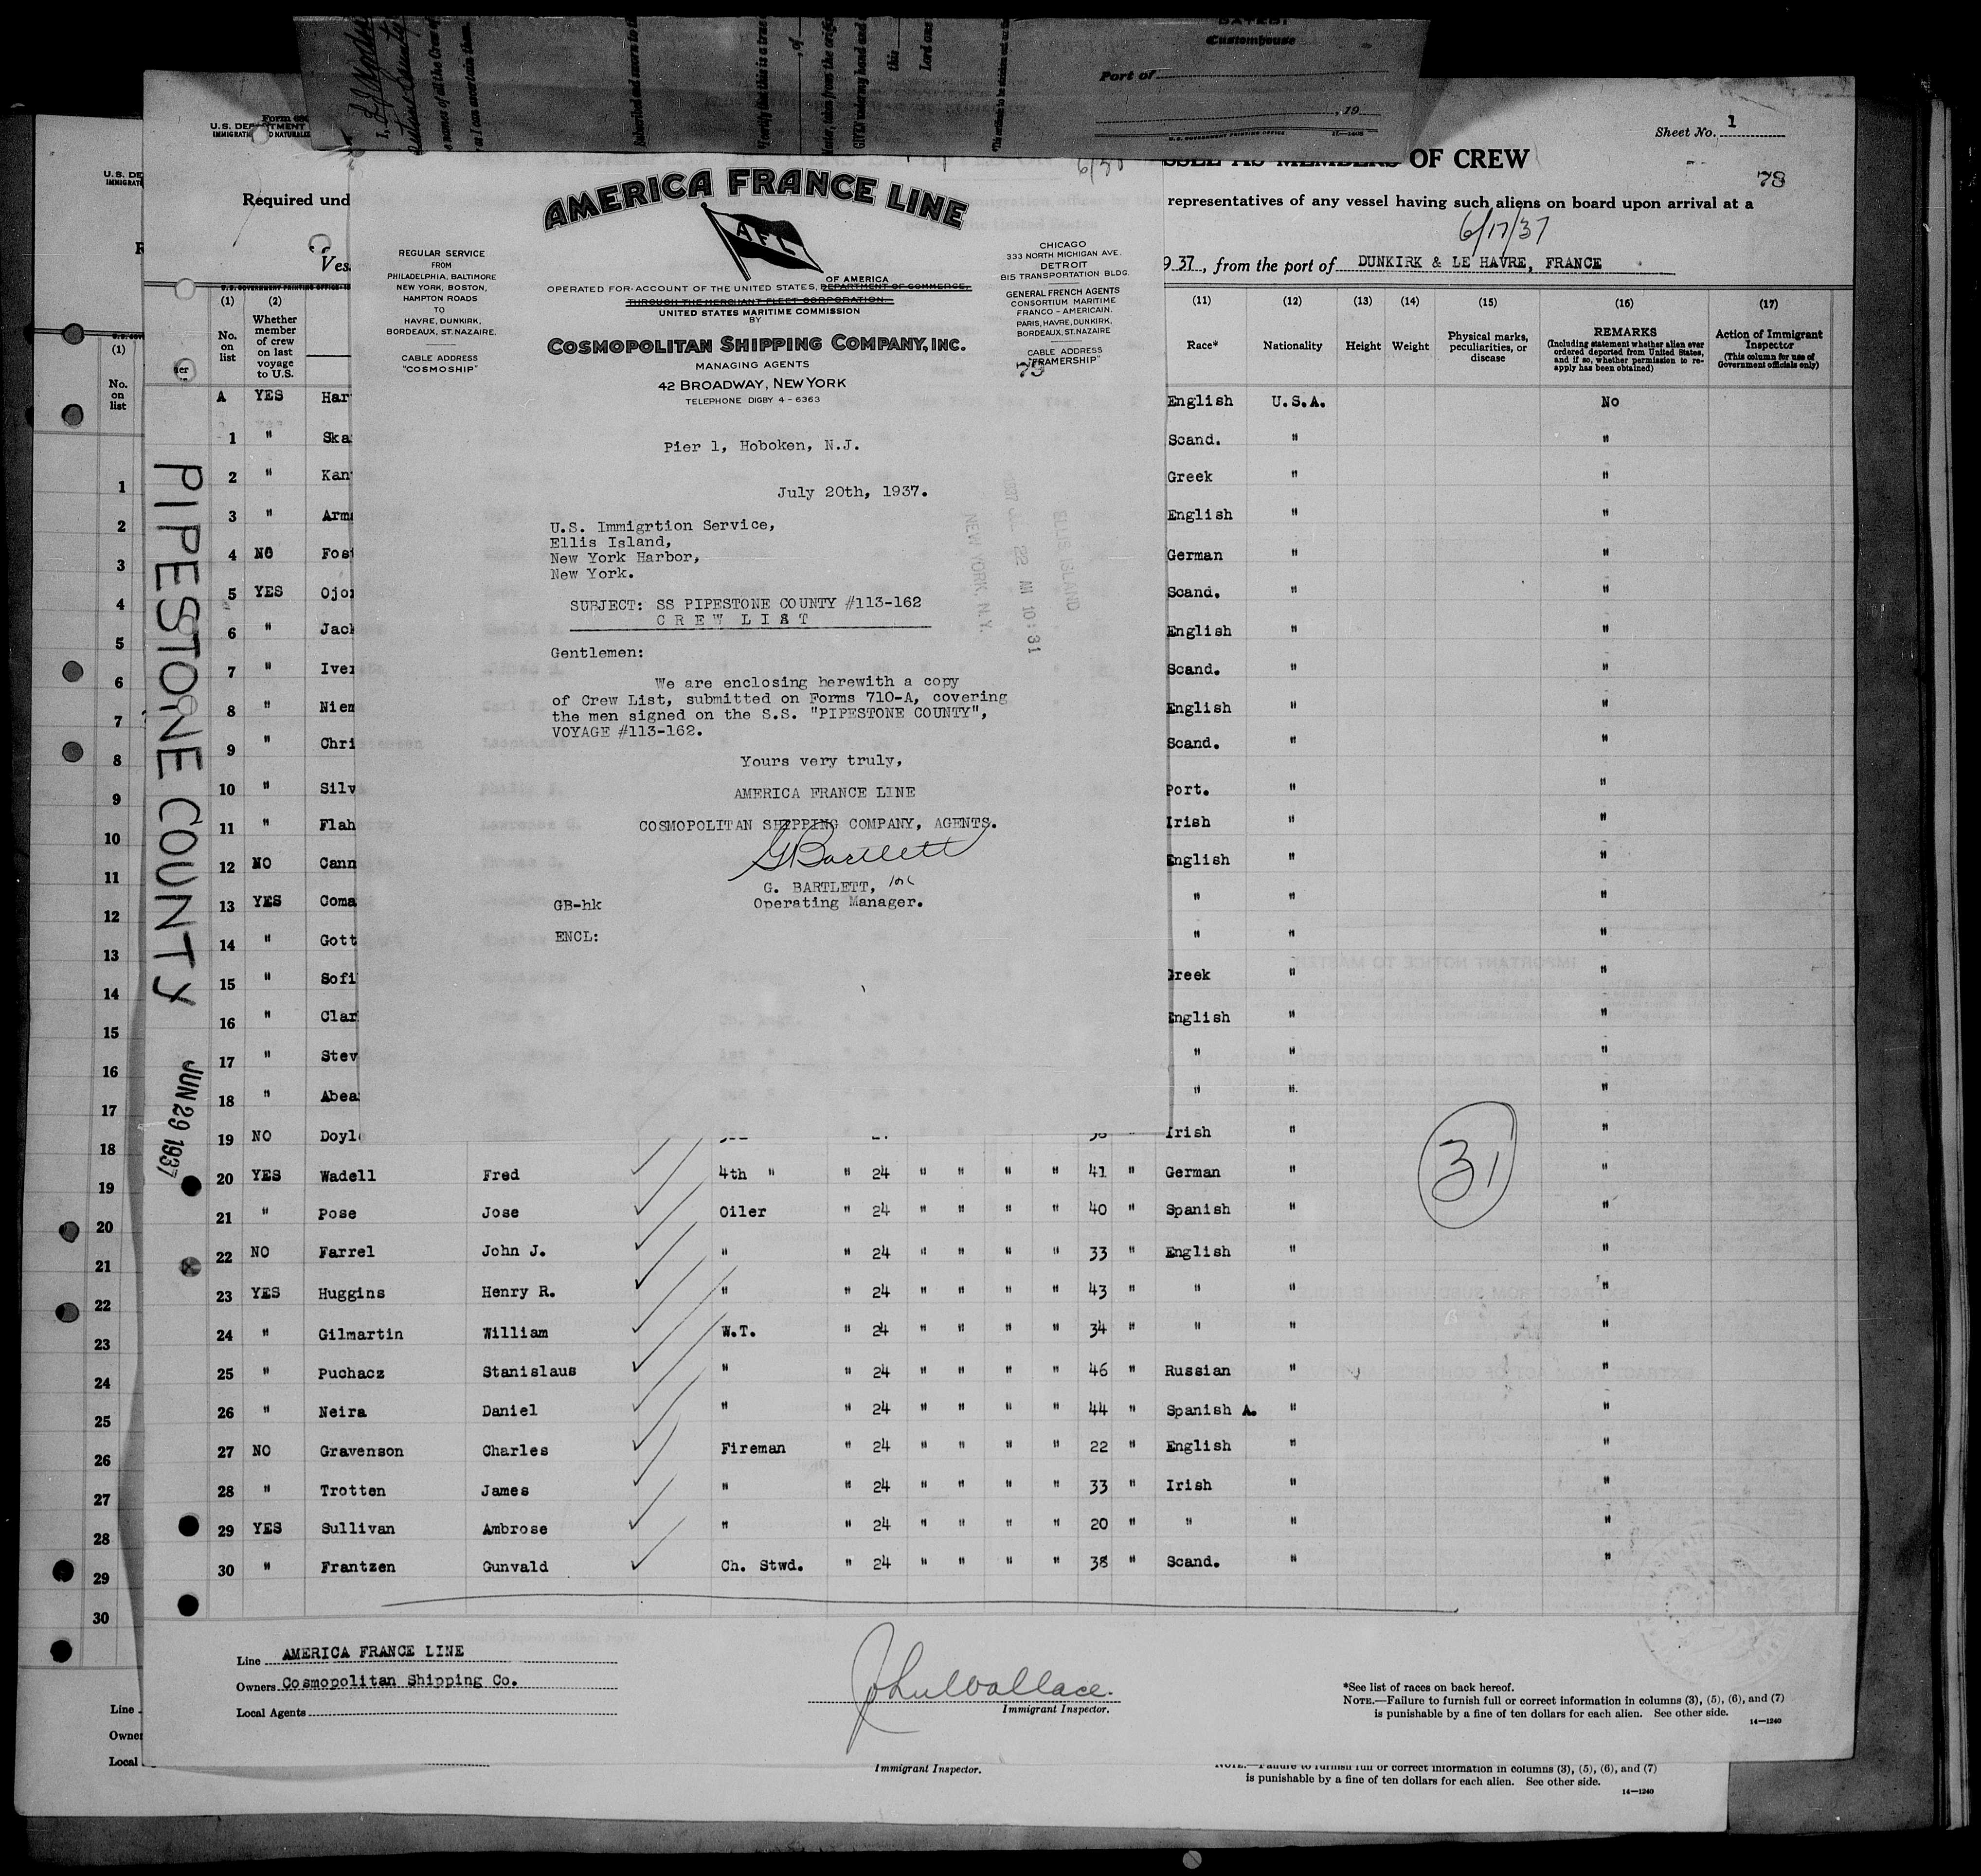 DATED:
Customhouse
Port of
, 19
U.S. GOVERNMENT PRINTING OFFICE
Subscribed and sworn to
I certify that this is a true
, of
Master, taken from the
GIVEN under my hand and
this
Lord one
e names of all the Crew of
as I can ascertain them.
Sheet No. 1
OF CREW
78
Required und
representatives of any vessel having such aliens on board upon arrival at a
6/17/37
Ves
9 37, from the port of DUNKIRK & LE HAVRE, FRANCE
AMERICA FRANCE LINE
AFL
REGULAR SERVICE
FROM
PHILADELPHIA, BALTIMORE
NEW YORK, BOSTON,
HAMPTON ROADS
TO
HAVRE, DUNKIRK,
BORDEAUX, ST. NAZAIRE.
CABLE ADDRESS
"COSMOSHIP"
OF AMERICA
OPERATED FOR ACCOUNT OF THE UNITED STATES, DEPARTMENT OF COMMERCE,
THROUGH THE MERCHANT FLEET CORPORATION
UNITED STATES MARITIME COMMISSION
BY
COSMOPOLITAN SHIPPING COMPANY, INC.
MANAGING AGENTS
42 BROADWAY, NEW YORK
TELEPHONE DIGBY 4-6363
CHICAGO
333 NORTH MICHIGAN AVE.
DETROIT
815 TRANSPORTATION BLDG.
GENERAL FRENCH AGENTS
CONSORTIUM MARITIME
FRANCO-AMERICAIN.
PARIS, HAVRE, DUNKIRK,
BORDEAUX, ST. NAZAIRE
CABLE ADDRESS
"FRAMERSHIP"
Pier 1, Hoboken, N.J.
July 20th, 1937.
U.S. Immigrtion Service,
Ellis Island,
New York Harbor,
New York.
SUBJECT: SS PIPESTONE COUNTY #113-162
CREW LIST
Gentlemen:
We are enclosing herewith a copy
of Crew List, submitted on Forms 710-A, covering
the men signed on the S.S. "PIPESTONE COUNTY",
VOYAGE #113-162.
Yours very truly,
AMERICA FRANCE LINE
COSMOPOLITAN SHIPPING COMPANY, AGENTS.
G Bartlett
G. BARTLETT,
Operating Manager.
GB-hk
ENCL:
ELLIS ISLAND
22 AM 10:31
NEW YORK, N.Y.
PIPESTONE COUNTY
JUN 29 1937
(1) (2) (11) (12) (13) (14) (15) (16) (17)
No. on list
Whether member of crew on last voyage to U.S.
Race*
Nationality
Height
Weight
Physical marks, peculiarities, or disease
REMARKS
(Including statement whether alien ever ordered deported from United States, and if so, whether permission to re-apply has been obtained)
Action of Immigrant Inspector
(This column for use of Government officials only)
A YES Har English U.S.A. No
1 " Ska Scand. " "
2 " Kan Greek " "
3 " Arm English " "
4 NO Fos German " "
5 YES Ojo Scand. " "
6 " Jac English " "
7 " Ive Scand. " "
8 " Niem English " "
9 " Chri Scand. " "
10 " Silv Port. " "
11 " Flah Irish " "
12 NO Cann English " "
13 YES Coma " " "
14 " Gott " " "
15 " Sofi Greek " "
16 " Clar English " "
17 " Stev " " "
18 " Abea " " "
19 NO Doyl Irish " "
20 YES Wadell Fred 4th " " 24 " " " " 41 " German " "
21 " Pose Jose Oiler " 24 " " " " 40 " Spanish " "
22 NO Farrel John J. " " 24 " " " " 33 " English " "
23 YES Huggins Henry R. " " 24 " " " " 43 " " " "
24 " Gilmartin William W.T. " 24 " " " " 34 " " " "
25 " Puchacz Stanislaus " " 24 " " " " 46 " Russian " "
26 " Neira Daniel " " 24 " " " " 44 " Spanish A. " "
27 NO Gravenson Charles Fireman " 24 " " " " 22 " English " "
28 " Trotten James " " 24 " " " " 33 " Irish " "
29 YES Sullivan Ambrose " " 24 " " " " 20 " " " "
30 " Frantzen Gunvald Ch. Stwd. " 24 " " " " 38 " Scand. " "
31
Line AMERICA FRANCE LINE
Owners Cosmopolitan Shipping Co.
Local Agents
John Wallace
Immigrant Inspector.
*See list of races on back hereof.
NOTE.—Failure to furnish full or correct information in columns (3), (5), (6), and (7)
is punishable by a fine of ten dollars for each alien. See other side.
14—1240
(1)
No. on list
1
2
3
4
5
6
7
8
9
10
11
12
13
14
15
16
17
18
19
20
21
22
23
24
25
26
27
28
29
30
Line
Owner
Local
Immigrant Inspector.
NOTE.—Failure to furnish full or correct information in columns (3), (5), (6), and (7)
is punishable by a fine of ten dollars for each alien. See other side.
14—1240